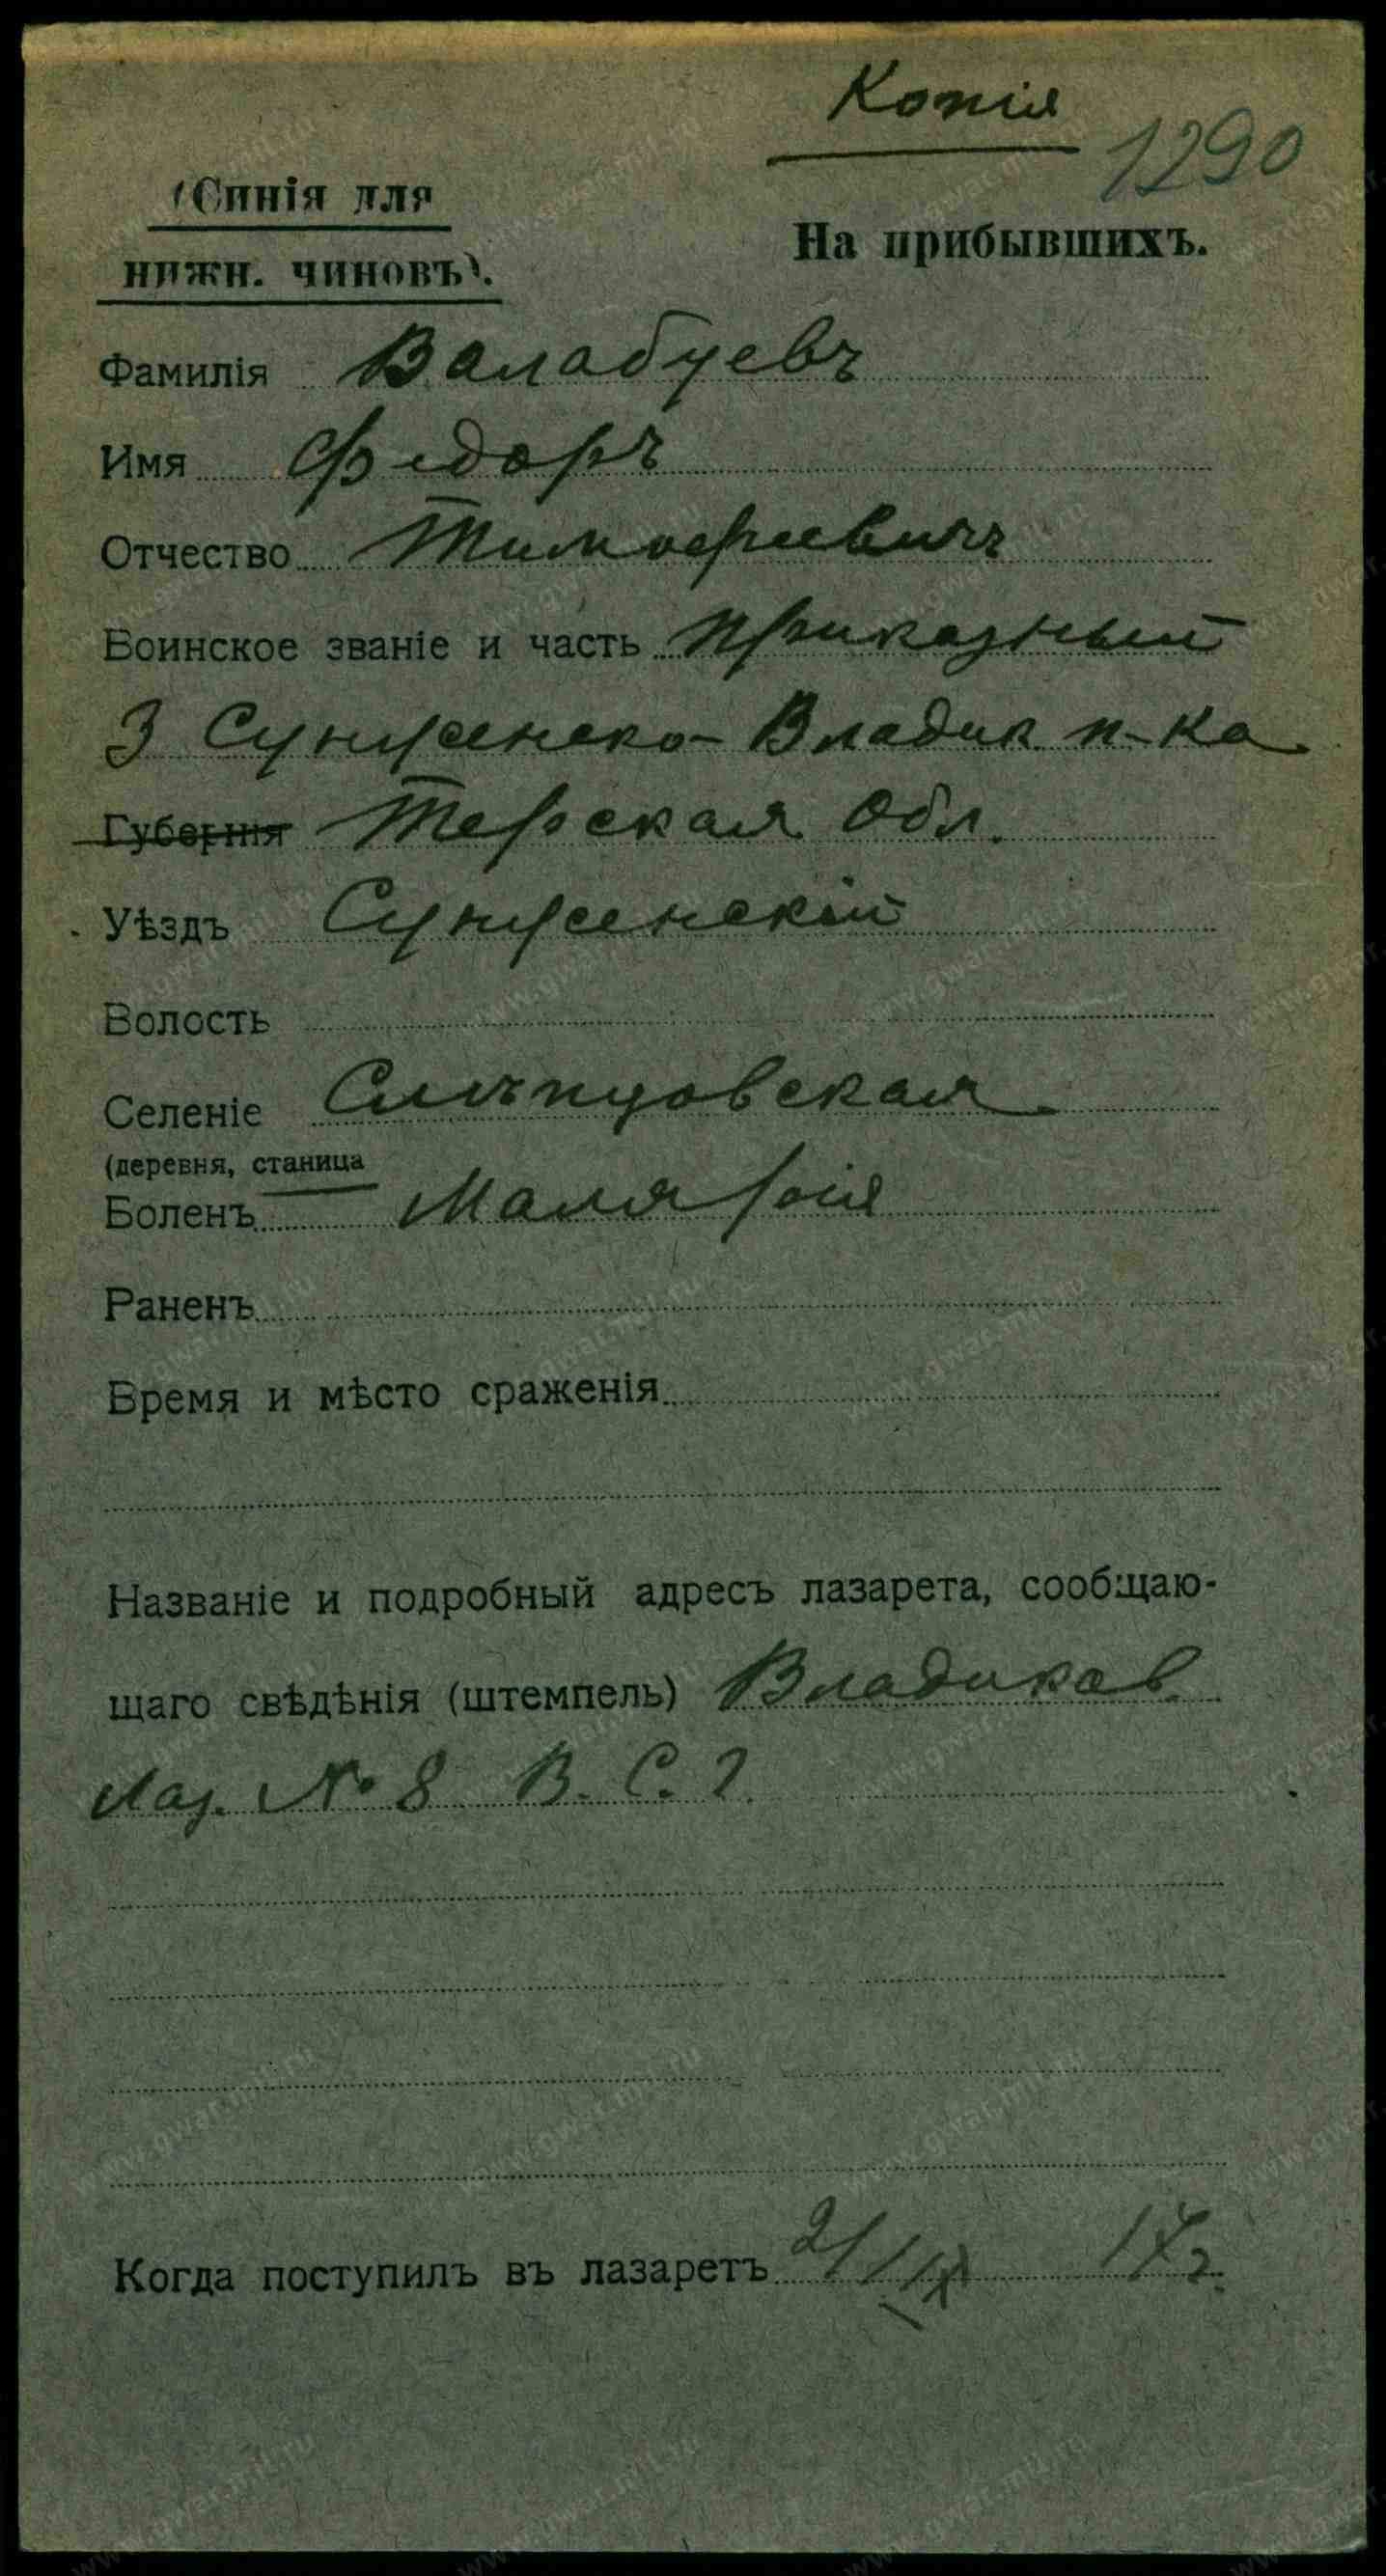 Копія
1290
(Синія для
нижн. чиновъ).
На прибывшихъ.
Фамилія Валабуевъ
Имя Федоръ
Отчество Тимофеевичъ
Воинское званіе и часть Приказный
3 Сунженско-Владик п-ка
Губернія Терская Обл.
Уѣздъ Сунженскій
Волость
Селеніе Слѣпцовская
(деревня, станица
Боленъ Малярія
Раненъ
Время и мѣсто сраженія
Названіе и подробный адресъ лазарета, сообщаю-
щаго свѣдѣнія (штемпель) Владикав
Лаз. № 8 В. С. Г.
Когда поступилъ въ лазаретъ 21/IX 17 г.